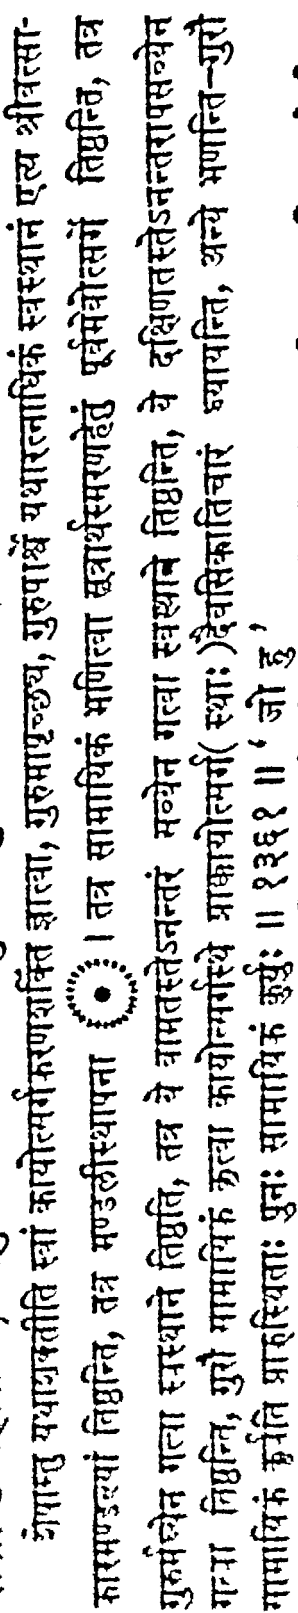 शेषास्तु यथाशक्तीति स्वां कायोत्सर्गकरणशक्तिं ज्ञात्वा, गुरुमापृच्छ्य, गुरुपार्श्वे यथारत्नाधिकं स्वस्थानं एत्य श्रीवत्सा-
कारमण्डल्यां तिष्ठन्ति, तत्र मण्डलीस्थापना । तत्र सामायिकं भणित्वा सूत्रार्थस्मरणहेतुं पूर्वमेवोत्सर्गे तिष्ठन्ति, तत्र
गुरुर्मध्येन गत्वा स्वस्थाने तिष्ठति, तत्र ये वामतस्तेऽनन्तरं सव्येन गत्वा स्वस्थाने तिष्ठन्ति, ये दक्षिणतस्तेऽनन्तरापसव्येन
गत्वा तिष्ठन्ति, गुरौ सामायिकं कृत्वा कायोत्सर्गस्थे प्राक्कायोत्सर्ग( स्थाः )दैवसिकातिचारं ध्यायन्ति, अन्ये भणन्ति-गुरौ
सामायिकं कुर्वति प्राक्स्थिताः पुनः सामायिकं कुर्युः ॥ १३६१ ॥ ' जो हु '